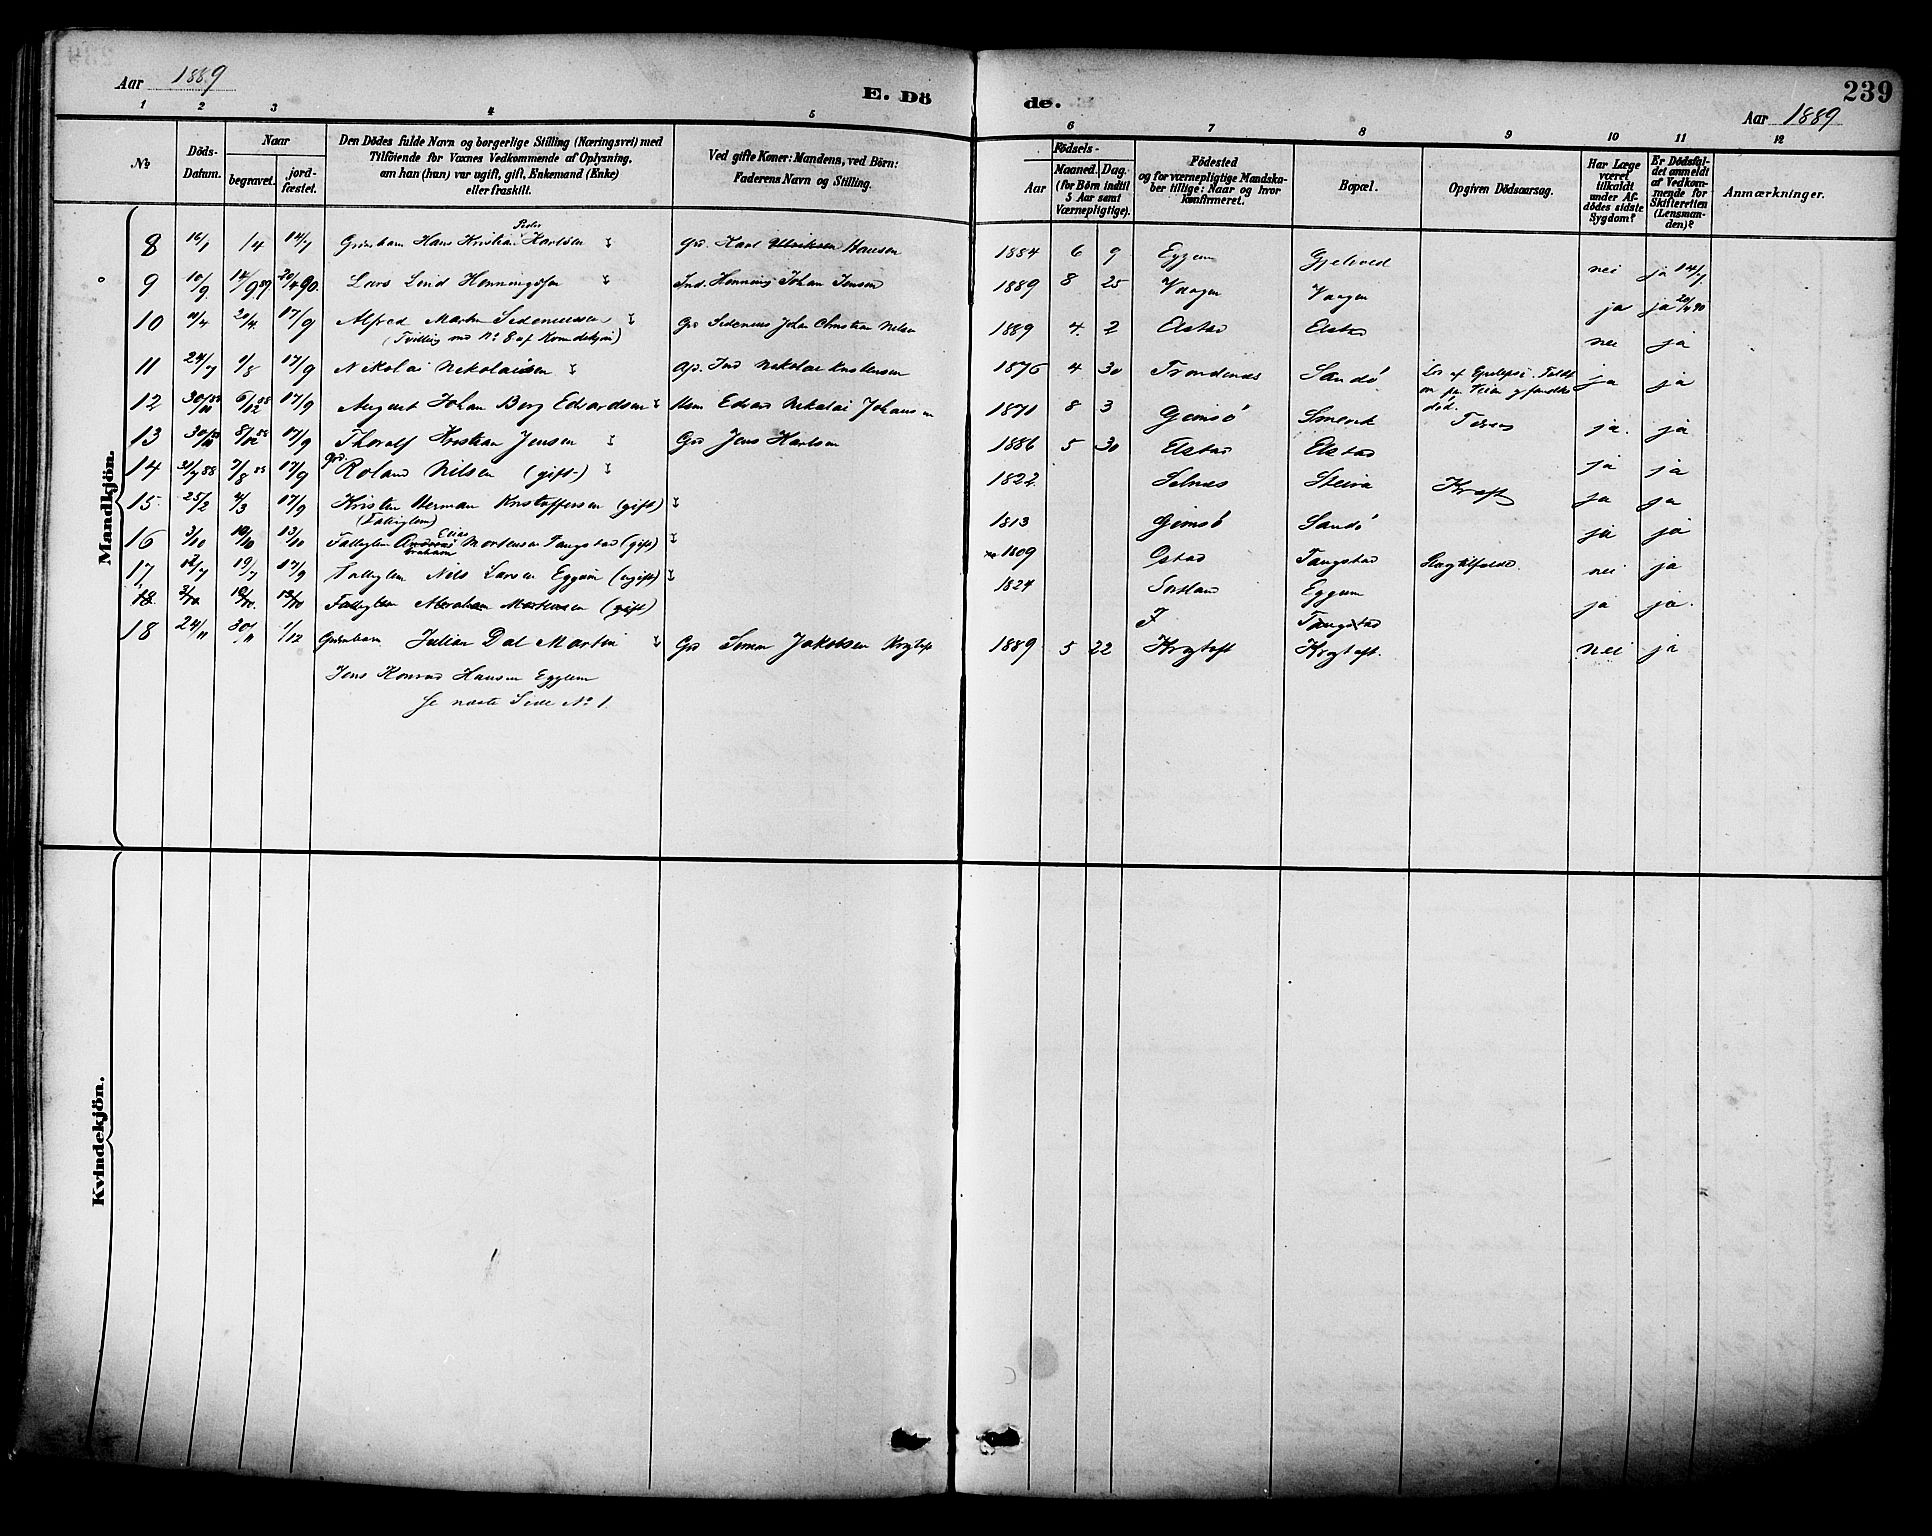 Aar 1889
E. Dö
de.
239
Aar 1889
1 2 3 4 5 6 7 8 9 10 11 12
№
Döds-Datum.
Naar
begravet.
jord-fæstet.
Den Dödes fulde Navn og borgerlige Stilling (Næringsvei) med
Tilföiende for Voxnes Vedkommende af Oplysning,
om han (hun) var ugift, gift, Enkemand (Enke)
eller fraskilt.
Ved gifte Koner: Mandens, ved Börn:
Faderens Navn og Stilling.
Födsels-
Aar
Maaned. Dag.
(for Börn indtil
5 Aar samt
Værnepligtige).
Födested
og for værnepligtige Mandska-
ber tillige: Naar og hvor
konfirmeret.
Bopæl.
Opgiven Dödsaarsag.
Har Læge
været
tilkaldt
under Af-
dödes sidste
Sygdom?
Er Dödsfal-
det anmeldt
af Vedkom-
mende for
Skifteretten
(Lensman-
den)?
Anmærkninger.
Mandkjön.
Peder
8 16/1 1/4 14/7 Hans Kristian Karlsen Grd. Karl Hansen 1884 6 9 Eggum nei ja 14/7
9 10/9 14/9 89 20/4 90. Lars Lind Henningsen Ind. Henning Johan Jensen 1889 8 25 Vaagen Vaagen ja ja 20/4 90
10 11/4 20/4 17/9 Alfred Martin Sedeniussen Grd Sedenius Johan Christian Nilsen 1889 4. 2 Elstad Elstad nei ja
(Tvilling med No 8 af Kvindekjøn)
11 24/7 1/8 17/9 Nikolai Nikolaisen Ind Nikolai Kristensen 1876 4 30 Trondenes Sandö ja ja
død.
12 6/12 88 17/9 August Johan Berg Edvardsen Edvard Nikolai Johansen 1871 8 3 Gimsö Smerik ja. ja
13 17/9 Thoralf Kristian Jensen Grd Jens Hartsen 1886 5 30 Elstad Elstad ja ja
Grd.
14 31/7 88 7/8 88 17/9 Roland Nilsen (gift) 1822 Selnes Steira Kræft ja ja
15 25/2 4/3 17/9 Kristen Herman Kristoffersen (gift) 1813 Gimsö Sandö ja ja
(Fattiglem)
Elias
16 3/10 10/10 13/10 Fattiglem Andreas Mortensen Tangstad (gift) 1809 Ostad Tangstad Slagtilfælde. nei ja
17 12/7 19/7 17/9 Fattiglem Nils Larsen Eggum (ugift) 1824 Sortland Eggum ja ja.
18. 3/10 10/10 13/10 Fattiglem Abraham Mortensen (gift) Tangstad
18 24/11 30/11 1/12 Julian Dal Martin Grd Simon Jakobsen Krogtoft 1889 5 22 Krogtoft Krogtoft. nei ja
Jens Konrad Hansen Egglem
Se næste Side No 1.
Kvindekjön.